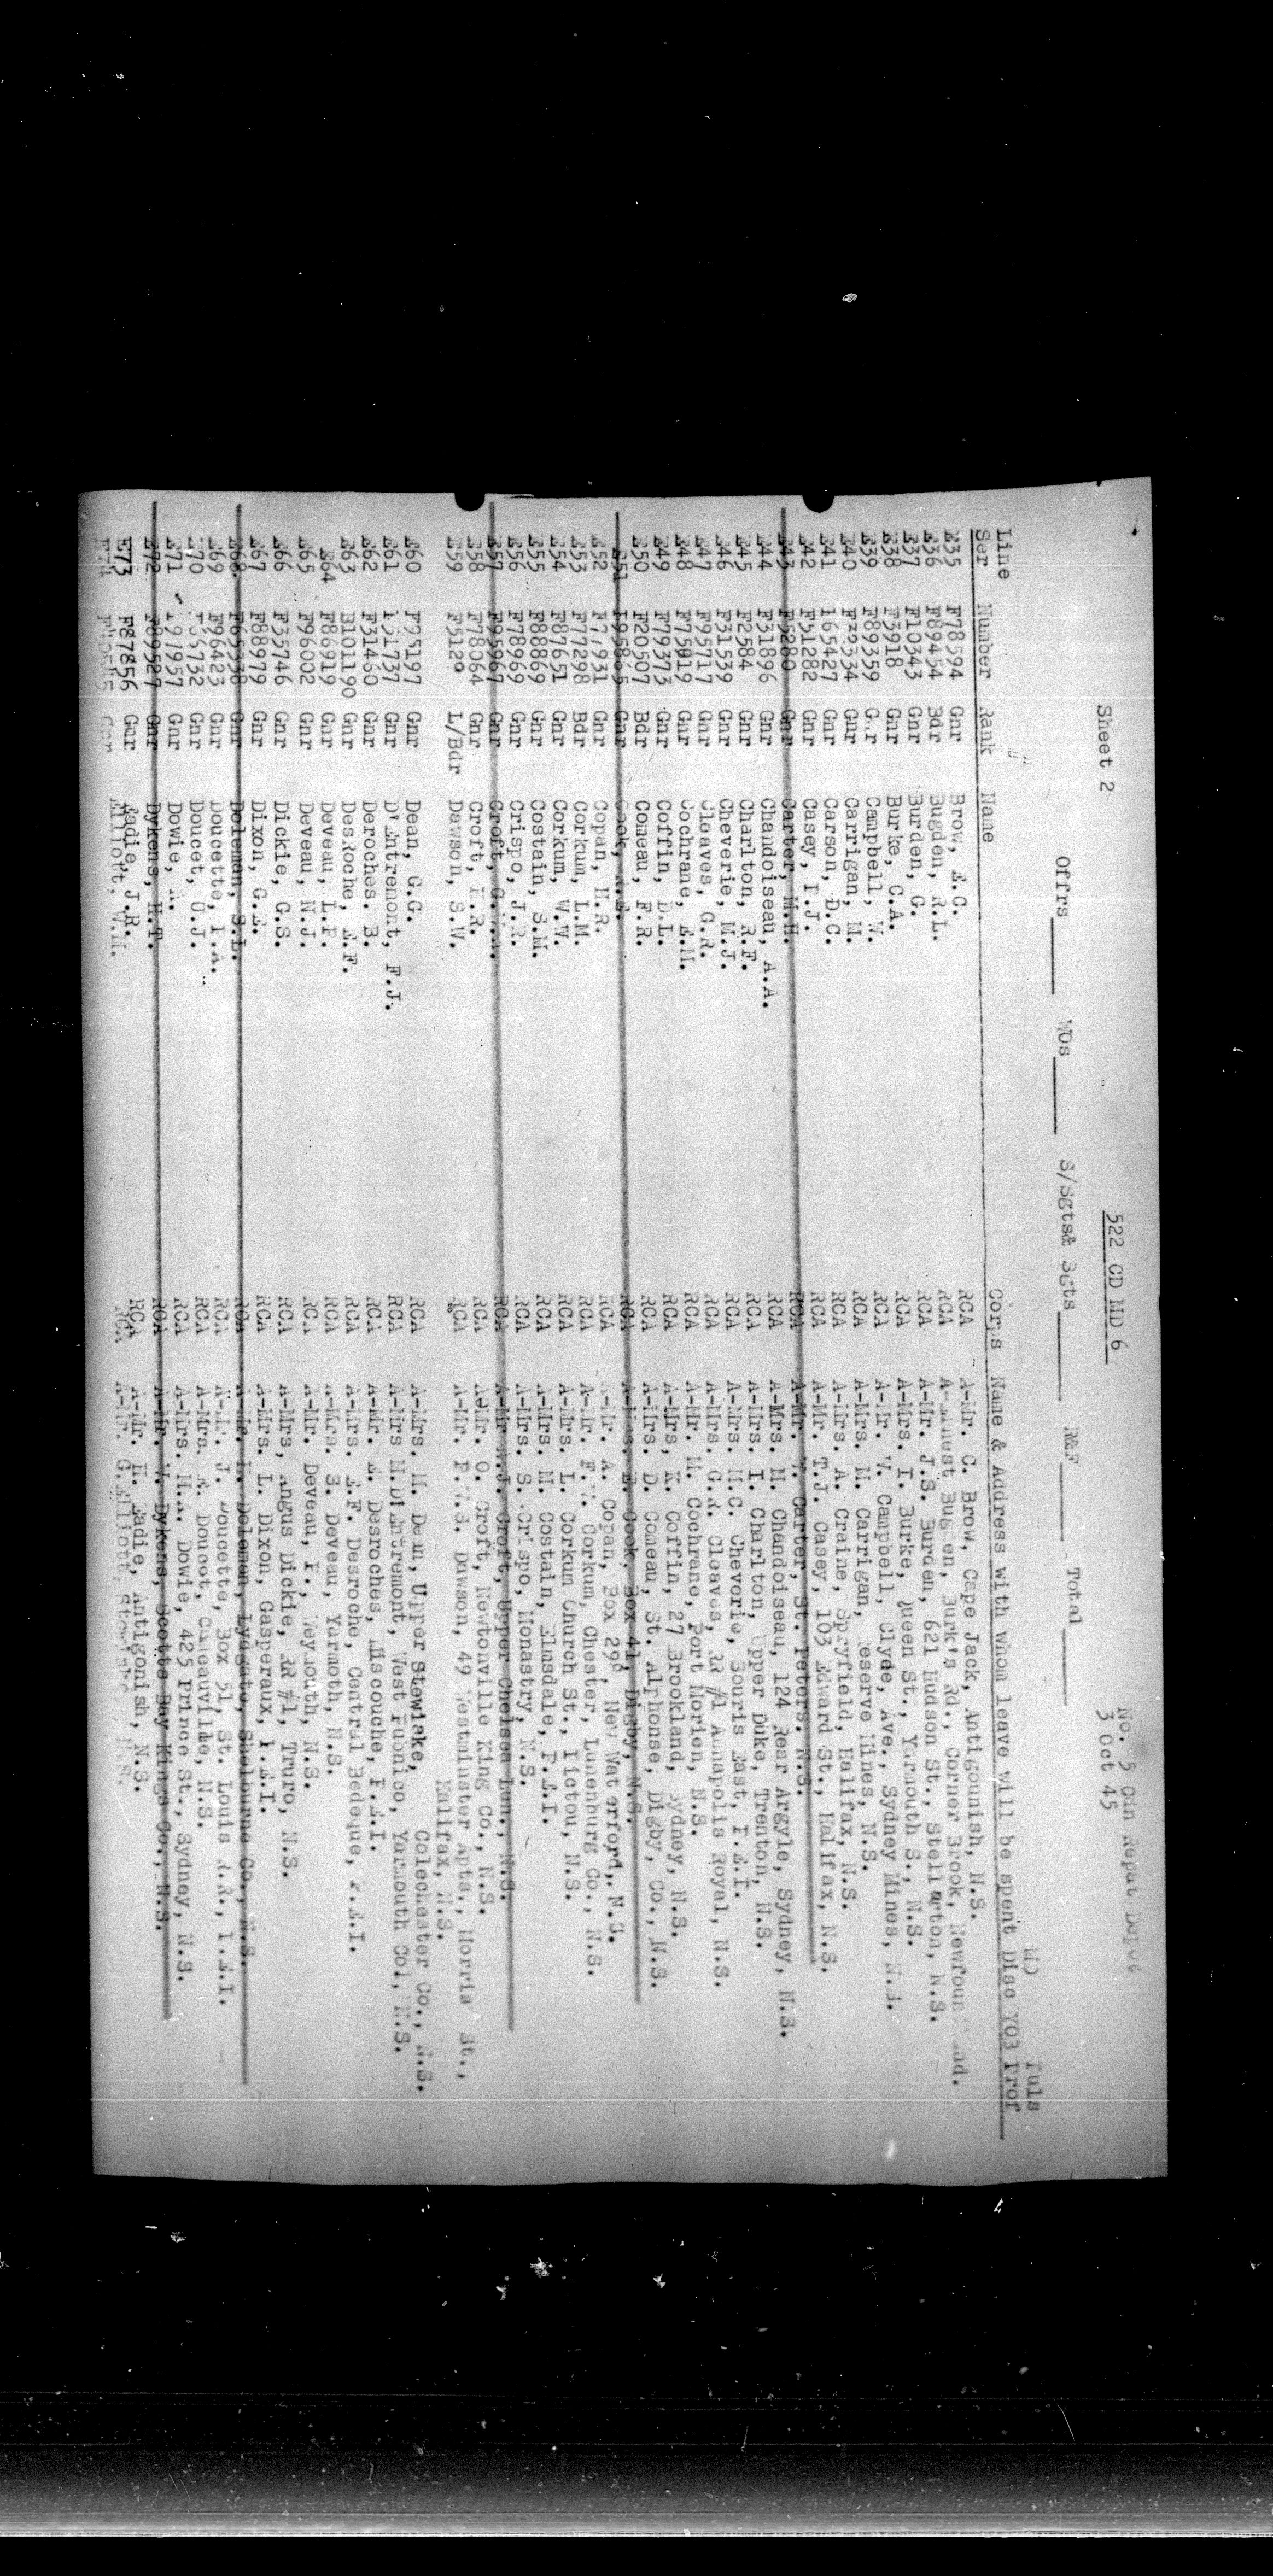 No. 5 Cdn Reput Depot
Sheet 2 522 CD MD 6 3 Oct 45
Offrs WOs S/Sgts& Sgts R&F Total
Line
Ser Number Rank Name Corps Name & Address with whom leave will be spent Disc YO3 Prof
E35 F78594 Gnr Brow, E.C. RCA A-Mr. C. Brow, Cape Jack, Antigounish, N.S.
E36 F89454 Bdr Bugden, R.L. RCA Burk's Rd., Corner Brook,
E37 F10343 Gnr Burden, G. RCA A-Mr. J.S. Burden, 621 Hudson St., Stellarton, N.S.
E38 F3918 Gnr Burke, C.A. RCA A-Mrs. I. Burke, Queen St., Yarmouth S., N.S.
E39 F89359 Gnr Campbell, W. RCA A-Mr. V. Campbell, Clyde, Ave., Sydney Mines, N.S.
E40 F32334 Gnr Carrigan, M. RCA A-Mrs. M. Carrigan, Reserve Mines, N.S.
E41 F65427 Gnr Carson, D.C. RCA A-Mrs. A. Crine, Spryfield, Halifax, N.S.
E42 F51282 Gnr Casey, T.J. RCA A-Mr. T.J. Casey, 103 Edward St., Halifax, N.S.
E43 Gnr Carter, M.H. RCA A-Mr. W. Carter, St. Peters. N.S.
E44 F31896 Gnr Chandoiseau, A.A. RCA A-Mrs. M. Chandoiseau, 124 Rear Argyle, Sydney, N.S.
E45 F2584 Gnr Charlton, R.F. RCA A-Mrs. I. Charlton, Upper Duke, Trenton, N.S.
E46 F31539 Gnr Cheverie, M.J. RCA A-Mrs. M.C. Cheverie, Souris East, P.E.I.
E47 F95717 Gnr Cleaves, G.R. RCA A-Mrs. G.R. Cleaves, RR #1 Annapolis Royal, N.S.
E48 F75019 Gnr Cochrane, E.M. RCA A-Mr. M. Cochrane, Port Morien, N.S.
E49 F79373 Gnr Coffin, D.L. RCA A-Mrs, K. Coffin, 27 Brookland, Sydney, N.S.
E50 F20507 Bdr Comeau, F.R. RCA A-Mrs. D. Comeau, St. Alphonse, Digby, Co., N.S.
E51 F95865 Gnr Cook, RCA A-Mrs. E. Cook, Box 41, Digby, N.S.
E52 F77931 Gnr Copan, H.R. RCA A-Mr. A. Copan, Box 299, New Waterford, N.S.
E53 F77298 Bdr Corkum, L.M. RCA A-Mr. F.W. Corkum, Chester, Lunenburg Co., N.S.
E54 F87651 Gnr Corkum, W.W. RCA A-Mrs. L. Corkum Church St., Pictou, N.S.
E55 F88869 Gnr Costain, S.M. RCA A-Mrs. M. Costain, Elmsdale, P.E.I.
E56 F78969 Gnr Crispo, J.R. RCA A-Mrs. S. Crispo, Monastry, N.S.
E57 F95967 Gnr Croft, G.W.A. RCA Croft, Upper Chelsea Lun., N.S.
E58 F78364 Gnr Croft, H.R. RCA A-Mr. O. Croft, Newtonville King Co., N.S.
E59 F5129 L/Bdr Dawson, S.W. RCA A-Mr. F.W.S. Dawson, 49 Westminster Apts., Morris St.,
Halifax, N.S.
E60 F95197 Gnr Dean, G.G. RCA A-Mrs. M. Dean, Upper Stewiake,
Colechester Co., N.S.
E61 Gnr D'Entremont, F.J. RCA A-Mrs M.D'Entremont, West Pubnico, Yarmouth Col, N.S.
E62 F31460 Gnr Deroches. B. RCA A-Mr. A. Desroches, Miscouche, P.E.I.
E63 E101190 Gnr DesRoche, E.F. RCA A-Mrs. E.F. Desroche, Central Bedeque, P.E.I.
E64 F86919 Gnr Deveau, L.P. RCA A-Mrs. S. Deveau, Yarmoth, N.S.
E65 F96002 Gnr Deveau, N.J. RCA A-Mr. Deveau, P., Weymouth, N.S.
E66 F35746 Gnr Dickie, G.S. RCA A-Mrs, Angus Dickie, RR #1, Truro, N.S.
E67 F88979 Gnr Dixon, G.E. RCA A-Mrs. L. Dixon, Gaspereaux, P.E.I.
E68 F65338 Gnr Doleman, S.L. RCA Doleman, Lydgate, Shelburne Co., N.S.
E69 F96423 Gnr Doucette, I.A. RCA J. Doucette, Box 51, St. Louis R.R., P.E.I.
E70 Gnr Doucet, U.J. RCA A-Mrs. E. Doucet, N.S.
E71 F97957 Gnr Dowie, A. RCA A-Mrs. M.A. Dowie, 425 Prince St., Sydney, N.S.
E72 F89527 Gnr Dykens, H.T. RCA Dykens, Scotts Bay Kings Co., N.S.
E73 F87856 Gnr Eadie, J.R. RCA A-Mr. H. Eadie, Antigonish, N.S.
E74 Gnr Elliott, W.M. RCA A-Mr. G. Elliott,